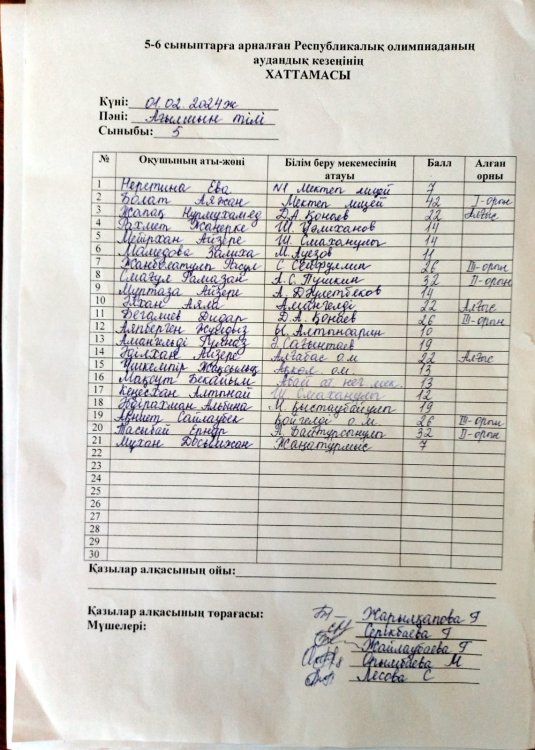 5-6 сыныптарға арналған Республикалық олимпиаданың
аудандық кезеңінің
ХАТТАМАСЫ
Күні: 01.02.2024ж
Пәні: Ағылшын тілі
Сыныбы: 5
№ Оқушының аты-жөні Білім беру мекемесінің атауы Балл Алған орны
1 Неретина Ева №1 Мектеп лицей 7
2 Болат Аяжан Мектеп лицей 42 I-орын
3 Жапақ Нұрмухамед Д.А. Қонаев 22 Алғыс
4 Рахмет Жанерке Ш. Уәлиханов 14
5 Мейрхан Айзере Ш. Смаханұлы 14
6 Мамедова Залиха М. Әуезов 11
7 С. Сейфуллин 26 III-орын
8 Смағұл Рамазан А.С. Пушкин 32 II-орын
9 Муртаза Айзере А. Дәулетбеков 14
10 Элхан Айла Амангелді 22 Алғыс
11 Бегалиев Дидар Д.А. Қонаев 26 III-орын
12 Алпберген Жулдыз Ы. Алтынсарин 10
13 Амангельді Гулназ Ә. Сағынтаев 19
14 Айзере Алғабас о.м 22 Алғыс
15 Ақкөл о.м. 13
16 Мақсұт Бекайым Абай ат нег мек. 13
17 Кеңесхан Алтынай Ш. Смаханұлы 12
18 Әбдірахман Альбина И. 19
19 Сайлаубек Қойгелді о.м. 26 III-орын
20 Тасыбай Ернұр А. Байтурсынұлы 32 II-орын
21 Мұхан Досымжан Жаңатұрмыс 7
22
23
24
25
26
27
28
29
30
Қазылар алқасының ойы:
Қазылар алқасының төрағасы: Жарылқапова Г
Мүшелері: Серікбаева Г
Жайлаубаева Г
Орынбаева М
Лесова С